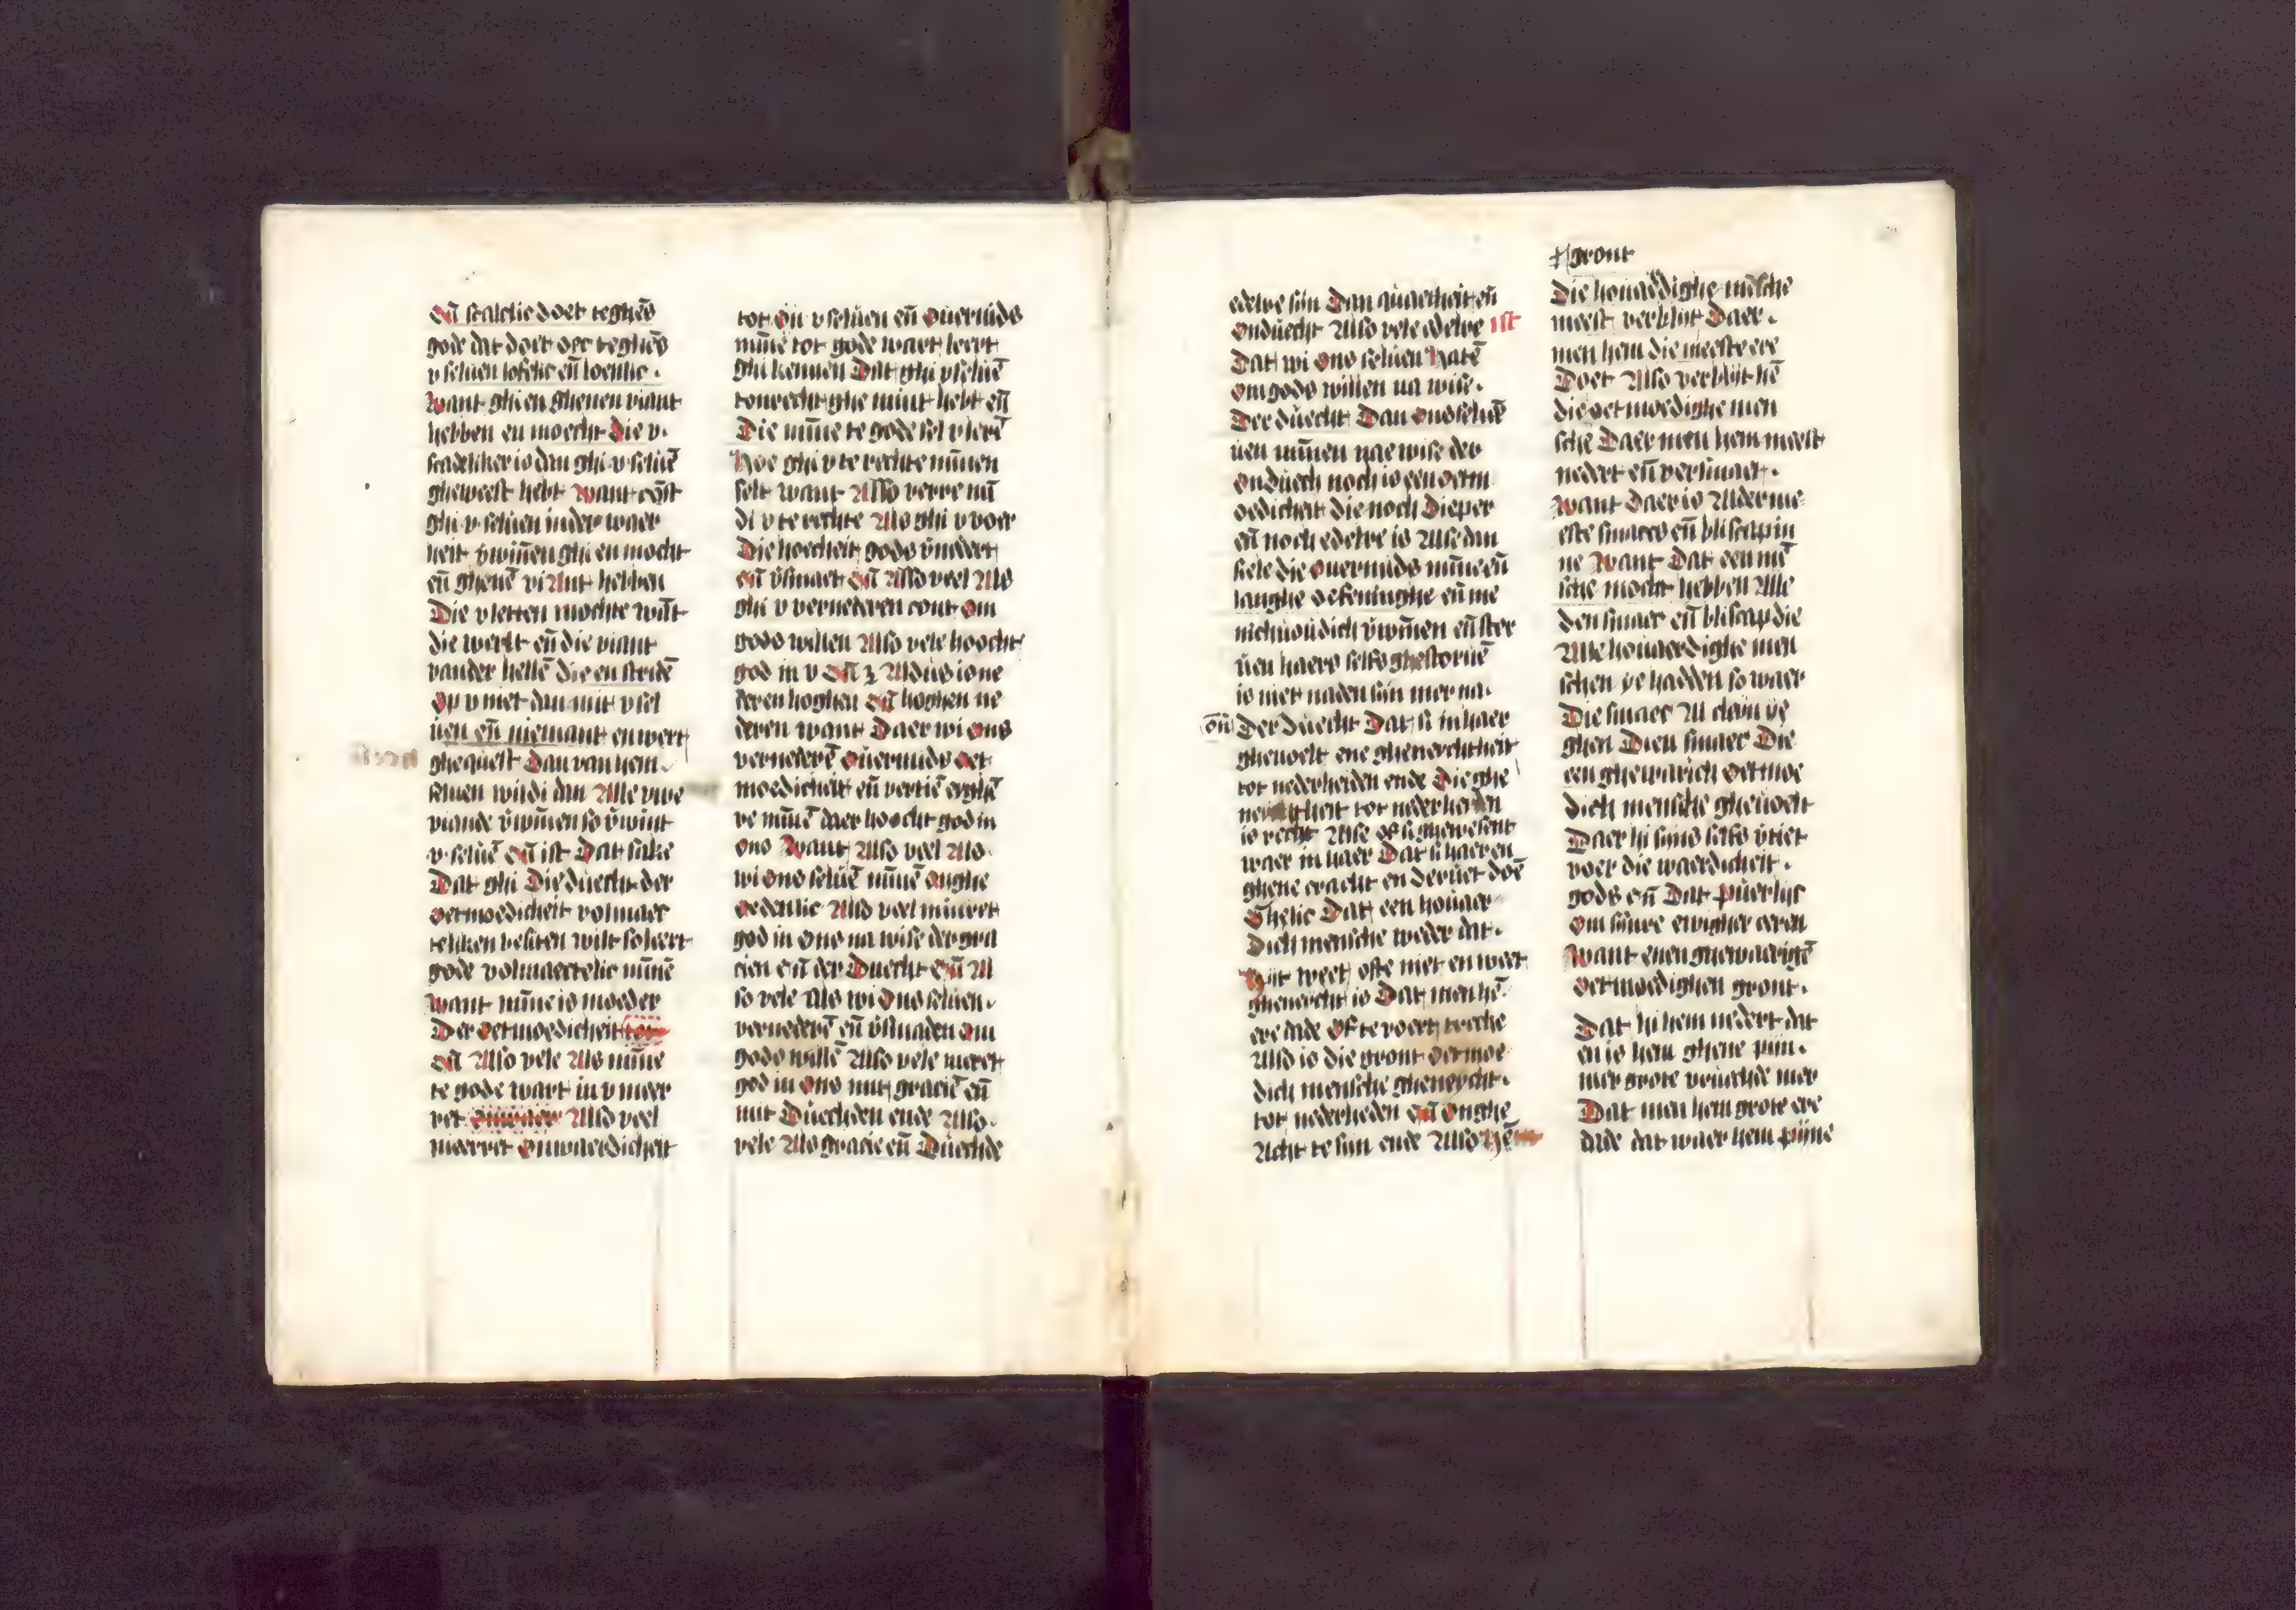 eñ scalclic doet teghēs
gode dat doet oec teghēs
v seluen lofelic eñ loenlic.
Want ghi en ghenen viant
hebben en moecht die v.
scadeliker is dan ghi v seluē
gheweest hebt want cōst
ghi v seluen in der waer
heit v̄winnen ghi en mocht
eñ ghenē viant hebben
Die v letten mochte wāt
die werlt eñ die viant
vander hellē die en stridē
op v niet dan mit v sel
uen eñ niemant en wert
ghequest Dan van hem.
seluen wildi dan Alle vwe
viande v̄winnen so v̄wint
v seluē eñ ist Dat sake
Dat ghi Die duecht der
oetmoedicheit volmaec
teliken besiten wilt so leert
gode volmaectelic minnē
want minne is moeder
Der oetmoedicheit
eñ Also vele Als minne
te gode wart in v meer
ret Also veel
meerret onwaerdicheit
tot ōu v seluen eñ ouermids
minne tot gode waert leert
ghi kennen Dat ghi v seluē
tonrecht ghe mint hebt eñ
Die minne te gode sel v lerē
Hoe ghi v te rechte minnen
selt want Also verre mī
di v te rechte Als ghi v voer
Die hoecheit gods v̄nedert
eñ v̄smaet eñ Also veel Als
ghi v vernederen cont om
gods willen Also vele hoocht
god in v eñ Aldus is ne
deren hoghen eñ hoghen ne
deren want Daer wi ons
vernederē ouermids oet
moedicheit eñ vertiē eyghē
re minnē daer hoocht god in
ons Want Also veel Als
wi ons seluē minnē onghe
oedenlic Also veel minret
god in ons na wise der gra
cien eñ der Duecht eñ Al
so vele Als wi ons seluen.
vernederē eñ v̄smaden om
gods willē Also vele meret
god in ons mit graciē eñ
mit Duechden ende Also.
vele Als gracie eñ Duechde
edelre sijn Dan quaetheit eñ
onduecht Also vele edelre ist
Dat wi ons seluen hatē
om gods willen na wise.
Der duecht Dan ons selue
uen minnen nae wise der
onduech noch is een oetm
oedicheit die noch Dieper
eñ noch edelre is Alse dan
siele die ouermids minne eñ
langhe oefeninghe eñ me
nichuoudich v̄winnen eñ ster
uen haers selfs ghestoruē
is niet na den sin mer na.
oñ Der duecht Dat si in haer
gheuoelt ene gheneychtheit
tot nederheiden ende Die ghe
neichtheit tot nederheiden
is recht Alse of si ghewesent
waer in haer Dat si haer en
ghene cracht en deruet doē
Ghelic Dat een houaer
Dich mensche weder dat.
hijt weet ofte niet en weet
gheneycht is Dat men hē
ere dade Of te voert trecke
Also is die gront oetmoe
dich mensche gheneycht.
tot nederheden eñ onghe
Acht te sijn ende Also
gront
Die houaerdighe mēsche
meest verblijt Daer.
men hem die meeste ere
Doet Also verblijt hē
die oetmoedighe men
sche Daer men hem meest
nedert eñ versmaet.
Want daer is Alder me
este smaec eñ bliscap in
ne Want Dat een mē
sche mocht hebben Alle
den smaec eñ bliscap die
Alle houaerdighe men
schen ye hadden so waer
Die smaec Al cleyn ye
ghen Dien smaec Die
een ghewarich oetmoe
dich mensche gheuoelt
Daer hi sijns selfs v̄tiet
voer die waerdicheit.
gods eñ Dat puerlijc
Om sijnre ewigher eeren
Want enen ghewaerigē
oetmoedighen gront.
Dat hi hem nedert dat
en is hem ghene pijn.
mer grote vruechde mer
Dat men hem grote ere
dade dat waer hem pijne